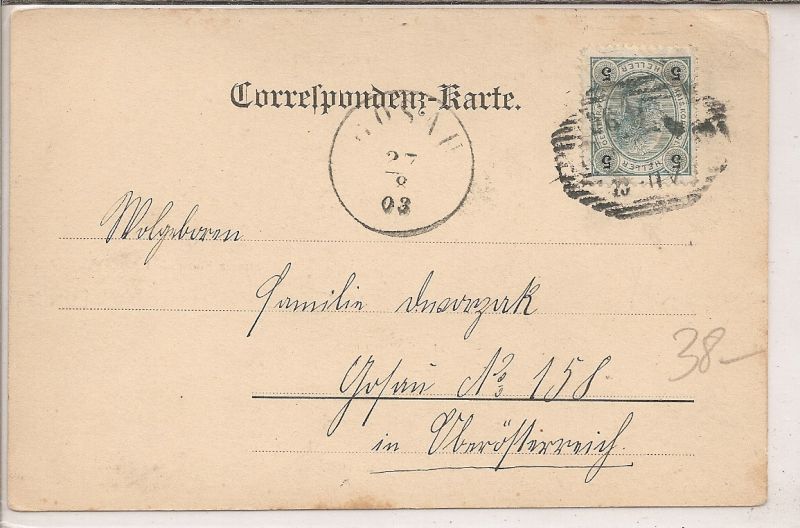 Correspondenz-Karte.
5 5
HELLER
HELLER
5 5
GOSAU
27
8
03
Wolgeboren
Familie Dworzak
Gosau No 158
in Oberösterreich.
38-